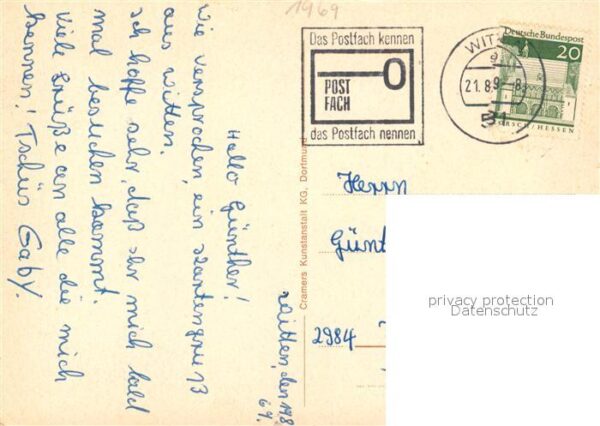 1969
Das Postfach kennen
POST
FACH
das Postfach nennen
WITT
21. 8. 9 - 8
Deutsche Bundespost
20
LORSCH / HESSEN
Witten, den 19.8.
69.
Hallo Günther!
Wie versprochen, ein Kartengruß
aus Witten.
Ich hoffe sehr, daß ihr mich bald
mal besuchen kommt.
Viele Grüße an alle die mich
kennen! Tschüs Gaby.
Cramers Kunstanstalt KG, Dortmund
Herrn
Günt
2984
privacy protection
Datenschutz